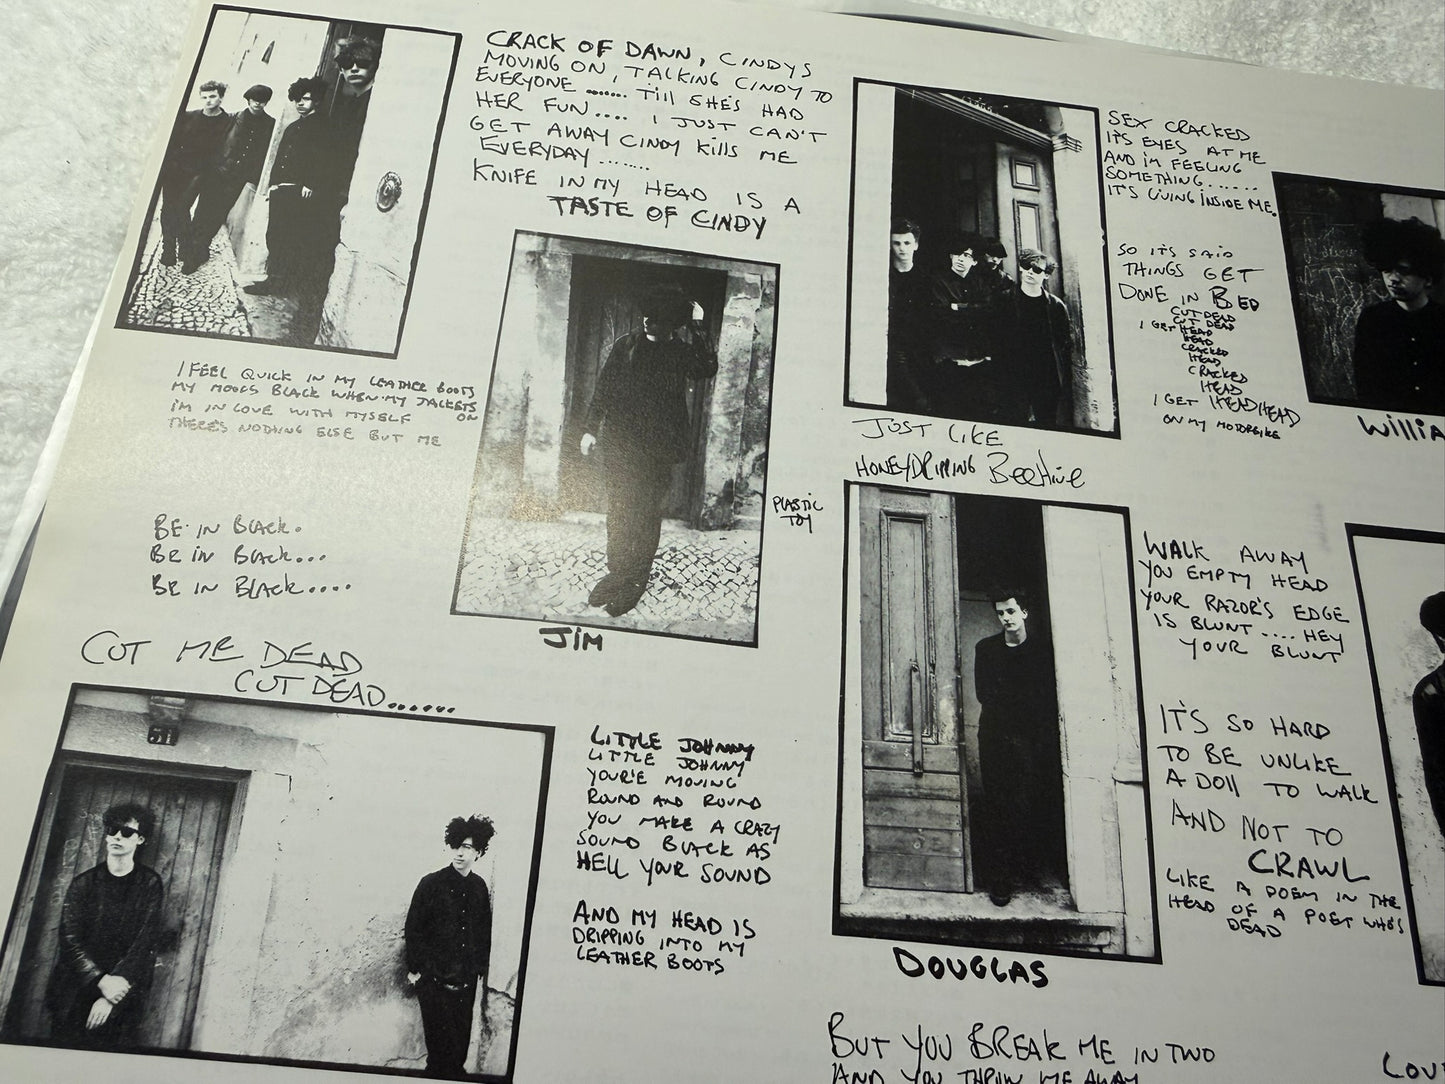 CRACK OF DAWN, CINDYS
MOVING ON, TALKING CINDY TO
EVERYONE ....... Till SHE'S HAD
HER FUN.... I JUST CAN'T
GET AWAY CINDY KILLS ME
EVERYDAY .......
KNIFE IN MY HEAD IS A
TASTE OF CINDY
I FEEL QUICK IN MY LEATHER BOOTS
MY MOODS BLACK WHEN MY JACKETS
ON
I'M IN LOVE WITH MYSELF
THERE'S NOTHING ELSE BUT ME
BE IN BLACK.
BE IN BLACK...
BE IN BLACK....
PLASTIC
TOY
JIM
CUT ME DEAD
CUT DEAD......
51
LITTLE JOHNNY
LITTLE JOHNNY
YOUR'E MOVING
ROUND AND ROUND
YOU MAKE A CRAZY
SOUND BLACK AS
HELL YOUR SOUND
AND MY HEAD IS
DRIPPING INTO MY
LEATHER BOOTS
JUST LIKE
HONEYDRIPPING BEEHIVE
DOUGLAS
SEX CRACKED
IT'S EYES AT ME
AND I'M FEELING
SOMETHING......
IT'S LIVING INSIDE ME.
SO IT'S SAID
THINGS GET
DONE IN BED
CUT DEAD
CUT DEAD
I GET HEAD
HEAD
CRACKED
HEAD
CRACKED
HEAD
I GET HEADHEAD
ON MY MOTORBIKE
WILLIA
WALK AWAY
YOU EMPTY HEAD
YOUR RAZOR'S EDGE
IS BLUNT .... HEY
YOUR BLUNT
IT'S SO HARD
TO BE UNLIKE
A DOll TO WALK
AND NOT TO
CRAWL
LIKE A POEM IN THE
HEAD OF A POET WHO'S
DEAD
BUT YOU BREAK ME IN TWO
AND YOU THROW ME AWAY
LOV